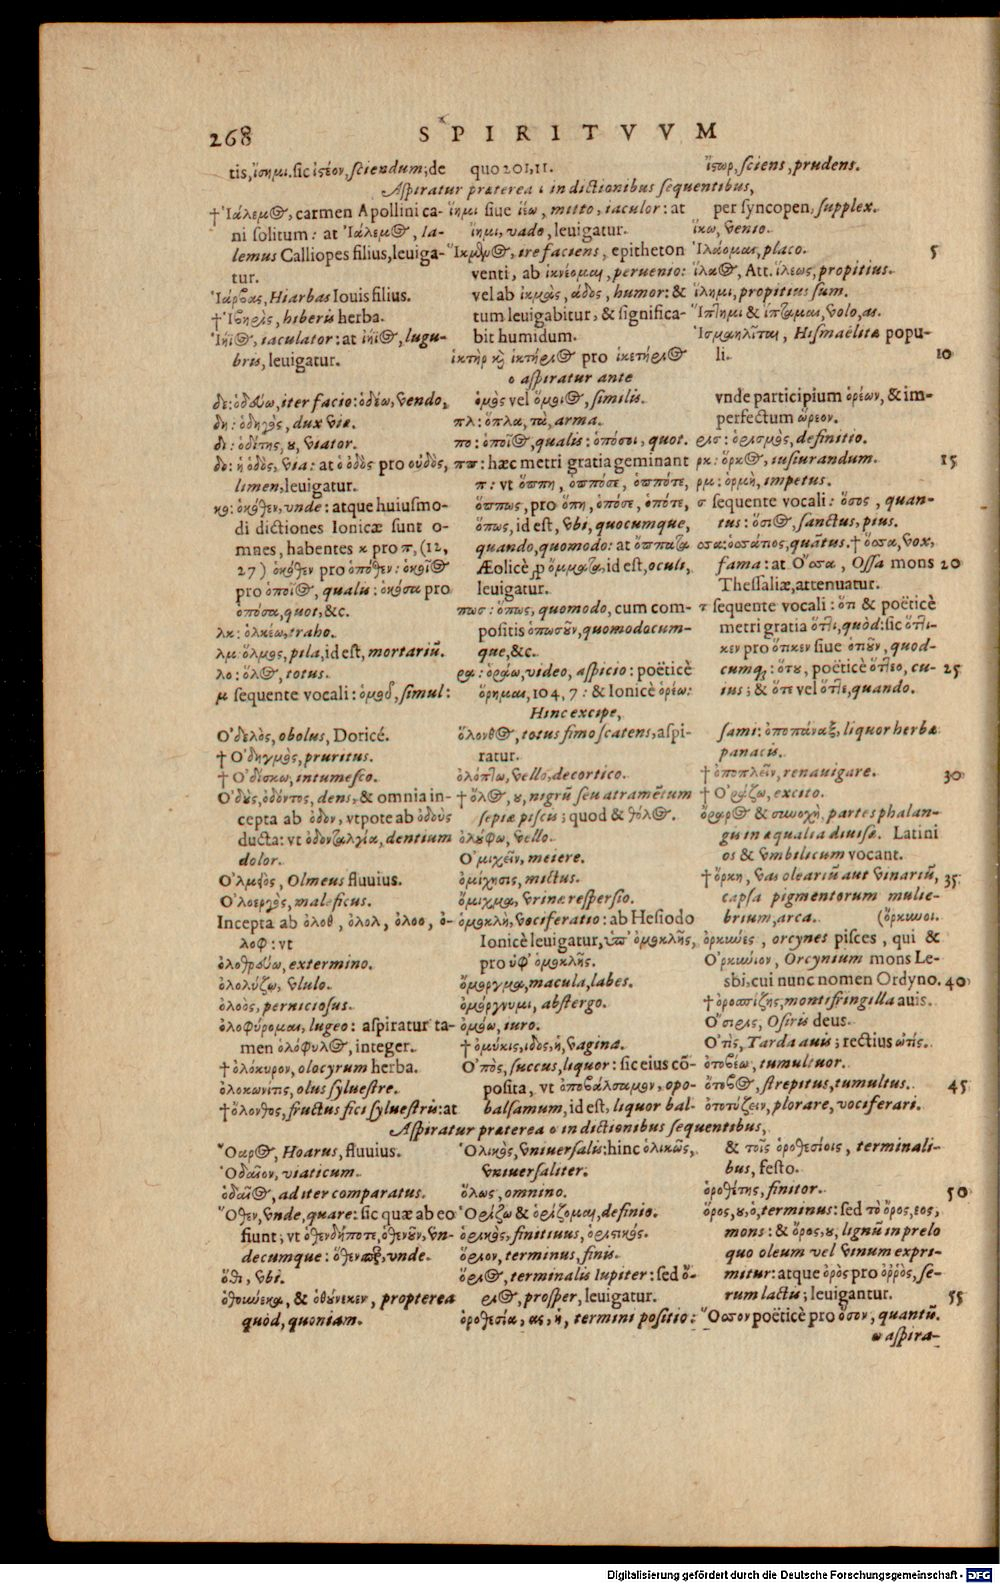 268 SPIRITVVM
tis, ἴσημι. sic ἰστέον, sciendum; de
quo 201, 11.
ἵστωρ, sciens, prudens.
Aspiratur præterea ι in dictionibus sequentibus,
† Ἱάλεμος, carmen Apollini ca-
ni solitum: at Ἰάλεμος, Ia-
lemus Calliopes filius, leuiga-
tur.
Ἱάρβας, Hiarbas Iouis filius.
† Ἱβηρὶς, hiberis herba.
Ἱήϊος, iaculator: at ἰήϊος, lugu-
bris, leuigatur.
ἵημι siue ἵεω, mitto, iaculor: at
ἴημι, vado, leuigatur.
Ἵκμενος, ire faciens, epitheton
venti, ab ἱκνέομαι, peruenio:
vel ab ἰκμὰς, άδος, humor: &
tum leuigabitur, & significa-
bit humidum.
ἱκτὴρ καὶ ἱκτήριος pro ἱκετήριος
per syncopen, supplex.
ἵκω, venio.
Ἱλάομαι, placo. 5
ἵλαος, Att. ἵλεως, propitius.
ἵλημι, propitius sum.
Ἵπτημι & ἵπταμαι, volo, as.
Ἱσμαηλῖται, Hismaëlitæ popu-
li. 10
ο aspiratur ante
δε: ὁδεύω, iter facio: ὁδέω, vendo,
δη: ὁδηγὸς, dux viæ.
δι: ὁδίτης, ου, viator.
δο: ἡ ὁδὸς, via: at ὁ ὀδὸς pro οὐδὸς,
limen, leuigatur.
κο: ὁκόθεν, vnde: atque huiusmo-
di dictiones Ionicæ sunt o-
mnes, habentes κ pro π, (12,
27) ὁκόθεν pro ὁπόθεν: ὁκοῖος
pro ὁποῖος, qualis: ὁκόσα pro
ὁπόσα, quot, &c.
λκ: ὁλκέω, traho.
λμ: ὅλμος, pila, id est, mortariũ.
λο: ὅλος, totus.
μ sequente vocali: ὁμοῦ, simul:
ὁμὸς vel ὅμοιος, similis.
πλ: ὅπλα, τὰ, arma.
πο: ὁποῖος, qualis: ὁπόσοι, quot.
ππ: hæc metri gratia geminant
π: vt ὅππη, ὁππόσε, ὁππότε,
ὅππως, pro ὅπη, ὁπόσε, ὁπότε,
ὅπως, id est, vbi, quocumque,
quando, quomodo: at ὄππατα
Æolicè ꝓ ὄμματα, id est, oculi,
leuigatur.
πωσ: ὅπως, quomodo, cum com-
positis ὁπωσοῦν, quomodocum-
que, &c.
ρα: ὁράω, video, aspicio: poëticè
ὅρημαι, 104, 7: & Ionicè ὁρέω:
vnde participium ὁρέων, & im-
perfectum ὥρεον.
ρισ: ὁρισμὸς, definitio.
ρκ: ὅρκος, iusiurandum. 15
ρμ: ὁρμὴ, impetus.
σ sequente vocali: ὅσος, quan-
tus: ὅσιος, sanctus, pius.
οσα: ὁσάπιος, quãtus. † ὅσσα, vox,
fama: at Ὄσσα, Ossa mons 20
Thessaliæ, attenuatur.
τ sequente vocali: ὅτι & poëticè
metri gratia ὅττι, quòd: sic ὅττι-
κεν pro ὅτικεν siue ὁτιοῦν, quod-
cumq;: ὅτου, poëticè ὅττεο, cu- 25
ius; & ὅτε vel ὅττε, quando.
Hinc excipe,
Ὀδελὸς, obolus, Doricé.
† Ὀδηγμὸς, pruritus.
† Ὀδίσκω, intumesco.
Ὀδοὺς, ὀδόντος, dens, & omnia in-
cepta ab ὀδον, vtpote ab ὀδοὺς
ducta: vt ὀδονταλγία, dentium
dolor.
Ὀλμειὸς, Olmeus fluuius.
Ὀλοεργὸς, maleficus.
Incepta ab ὀλοθ, ὀλολ, ὀλοο, ὀ-
λοφ: vt
ὀλοθρεύω, extermino.
ὀλολύζω, vlulo.
ὀλοὸς, perniciosus.
ὀλοφύρομαι, lugeo: aspiratur ta-
men ὁλόφυλος, integer.
† ὀλόκυρον, olocyrum herba.
ὀλοκωνίτις, olus syluestre.
† ὄλονθος, fructus fici syluestris: at
ὅλονθος, totus fimo scatens, aspi-
ratur.
ὀλόπτω, vello, decortico.
† ὀλὸς, ου, nigrũ seu atramẽtum
sepiæ piscis; quod & θολὸς.
ὀλούφω, vello.
Ὀμιχεῖν, meiere.
ὀμίχησις, mictus.
ὄμιχμα, vrinæ respersio.
ὀμοκλὴ, vociferatio: ab Hesiodo
Ionicè leuigatur, ὑπ' ὀμοκλῆς,
pro ὑφ' ὁμοκλῆς.
ὄμοργμα, macula, labes.
ὀμόργνυμι, abstergo.
ὀμόω, iuro.
† ὀμύκις, ιδος, ἡ, vagina.
Ὀπὸς, succus, liquor: sic eius cõ-
posita, vt ὀποβάλσαμον, opo-
balsamum, id est, liquor bal-
sami: ὀποπάναξ, liquor herbæ
panacis.
† ὀποπλεῖν, renauigare. 30
† Ὀράζω, excito.
ὄραρος & συνοχὴ, partes phalan-
gis inæqualia diuisæ. Latini
os & vmbilicum vocant.
† ὄρκη, vas oleariũ aut vinariũ, 35
capsa pigmentorum mulie-
brium, arca. (ὄρκυνοι.
ὀρκύνες, orcynes pisces, qui &
Ὀρκύνιον, Orcynium mons Le-
sbi, cui nunc nomen Ordyno. 40
† ὀροσπίζης, montifringilla auis.
Ὄσιρις, Osiris deus.
Ὀτὶς, Tarda auis; rectius ὠτίς.
ὀτοβέω, tumultuor.
ὄτοβος, strepitus, tumultus. 45
ὀτοτύζειν, plorare, vociferari.
Aspiratur præterea ο in dictionibus sequentibus,
Ὅαρος, Hoarus, fluuius.
Ὁδαῖον, viaticum.
ὁδαῖος, ad iter comparatus.
Ὅθεν, vnde, quare: sic quæ ab eo
fiunt; vt ὁθενδήποτε, ὁθενοῦν, vn-
decumque: ὅθενπερ, vnde.
ὅθι, vbi.
ὁθούνεκα, & ὁθούνεκεν, propterea
quòd, quoniam.
Ὁλικὸς, vniuersalis: hinc ὁλικῶς,
vniuersaliter.
ὅλως, omnino.
Ὁρίζω & ὁρίζομαι, definio.
ὁρικὸς, finitiuus, ὁριστικός.
ὅριον, terminus, finis.
ὅριος, terminalis Iupiter: sed ὄ-
ριος, prosper, leuigatur.
ὁροθεσία, ας, ἡ, termini positio:
& τοῖς ὁροθεσίοις, terminali-
bus, festo.
ὁροθέτης, finitor. 50
ὅρος, ου, ὁ, terminus: sed τὸ ὄρος, εος,
mons: & ὄρος, ου, lignũ in prelo
quo oleum vel vinum expri-
mitur: atque ὀρὸς pro ὀῤῥὸς, se-
rum lactis; leuigantur. 55
Ὅσσον poëticè pro ὅσον, quantũ.
ω aspira-
Digitalisierung gefördert durch die Deutsche Forschungsgemeinschaft - DFG